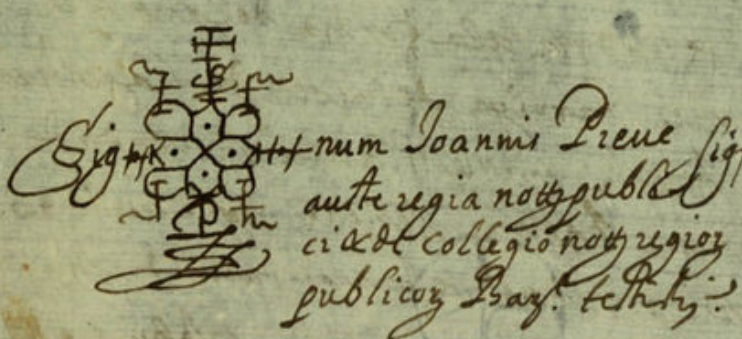 Sig num Joannis Preve
aucte regia noty publi
ci & de collegio noty regior
publicor Barz. testis